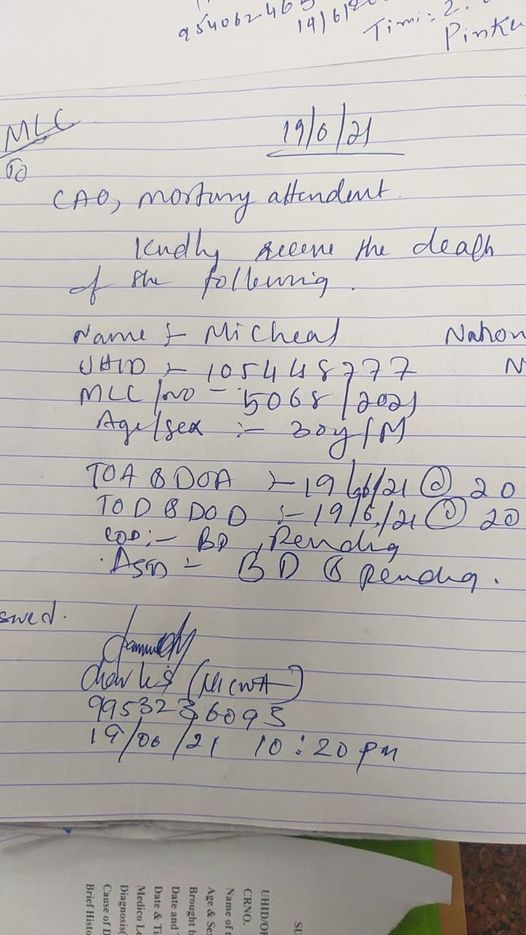 19/6/20
Timi: 2.
Pinku
MLC
19/6/21
To
CAO, mortury attendent.
Kindly receve the death
of the following.
Name :- Micheal Nation
UHID :- 105448777 N
MLC/no - 5068/2021
Age/sex :- 30y/M
TOA & DOA :- 19/6/21 @ 20
TOD & DOD :- 19/6/21 @ 20
COD :- BD, Pending
Charles
9953236093
19/06/21 10:20 pm
SU
UHID/OP
CRNO.
Name of t
Age & Se
Brought b
Date and
Date & Ti
Medico Le
Diagnosis(
Cause of D
Brief Histo